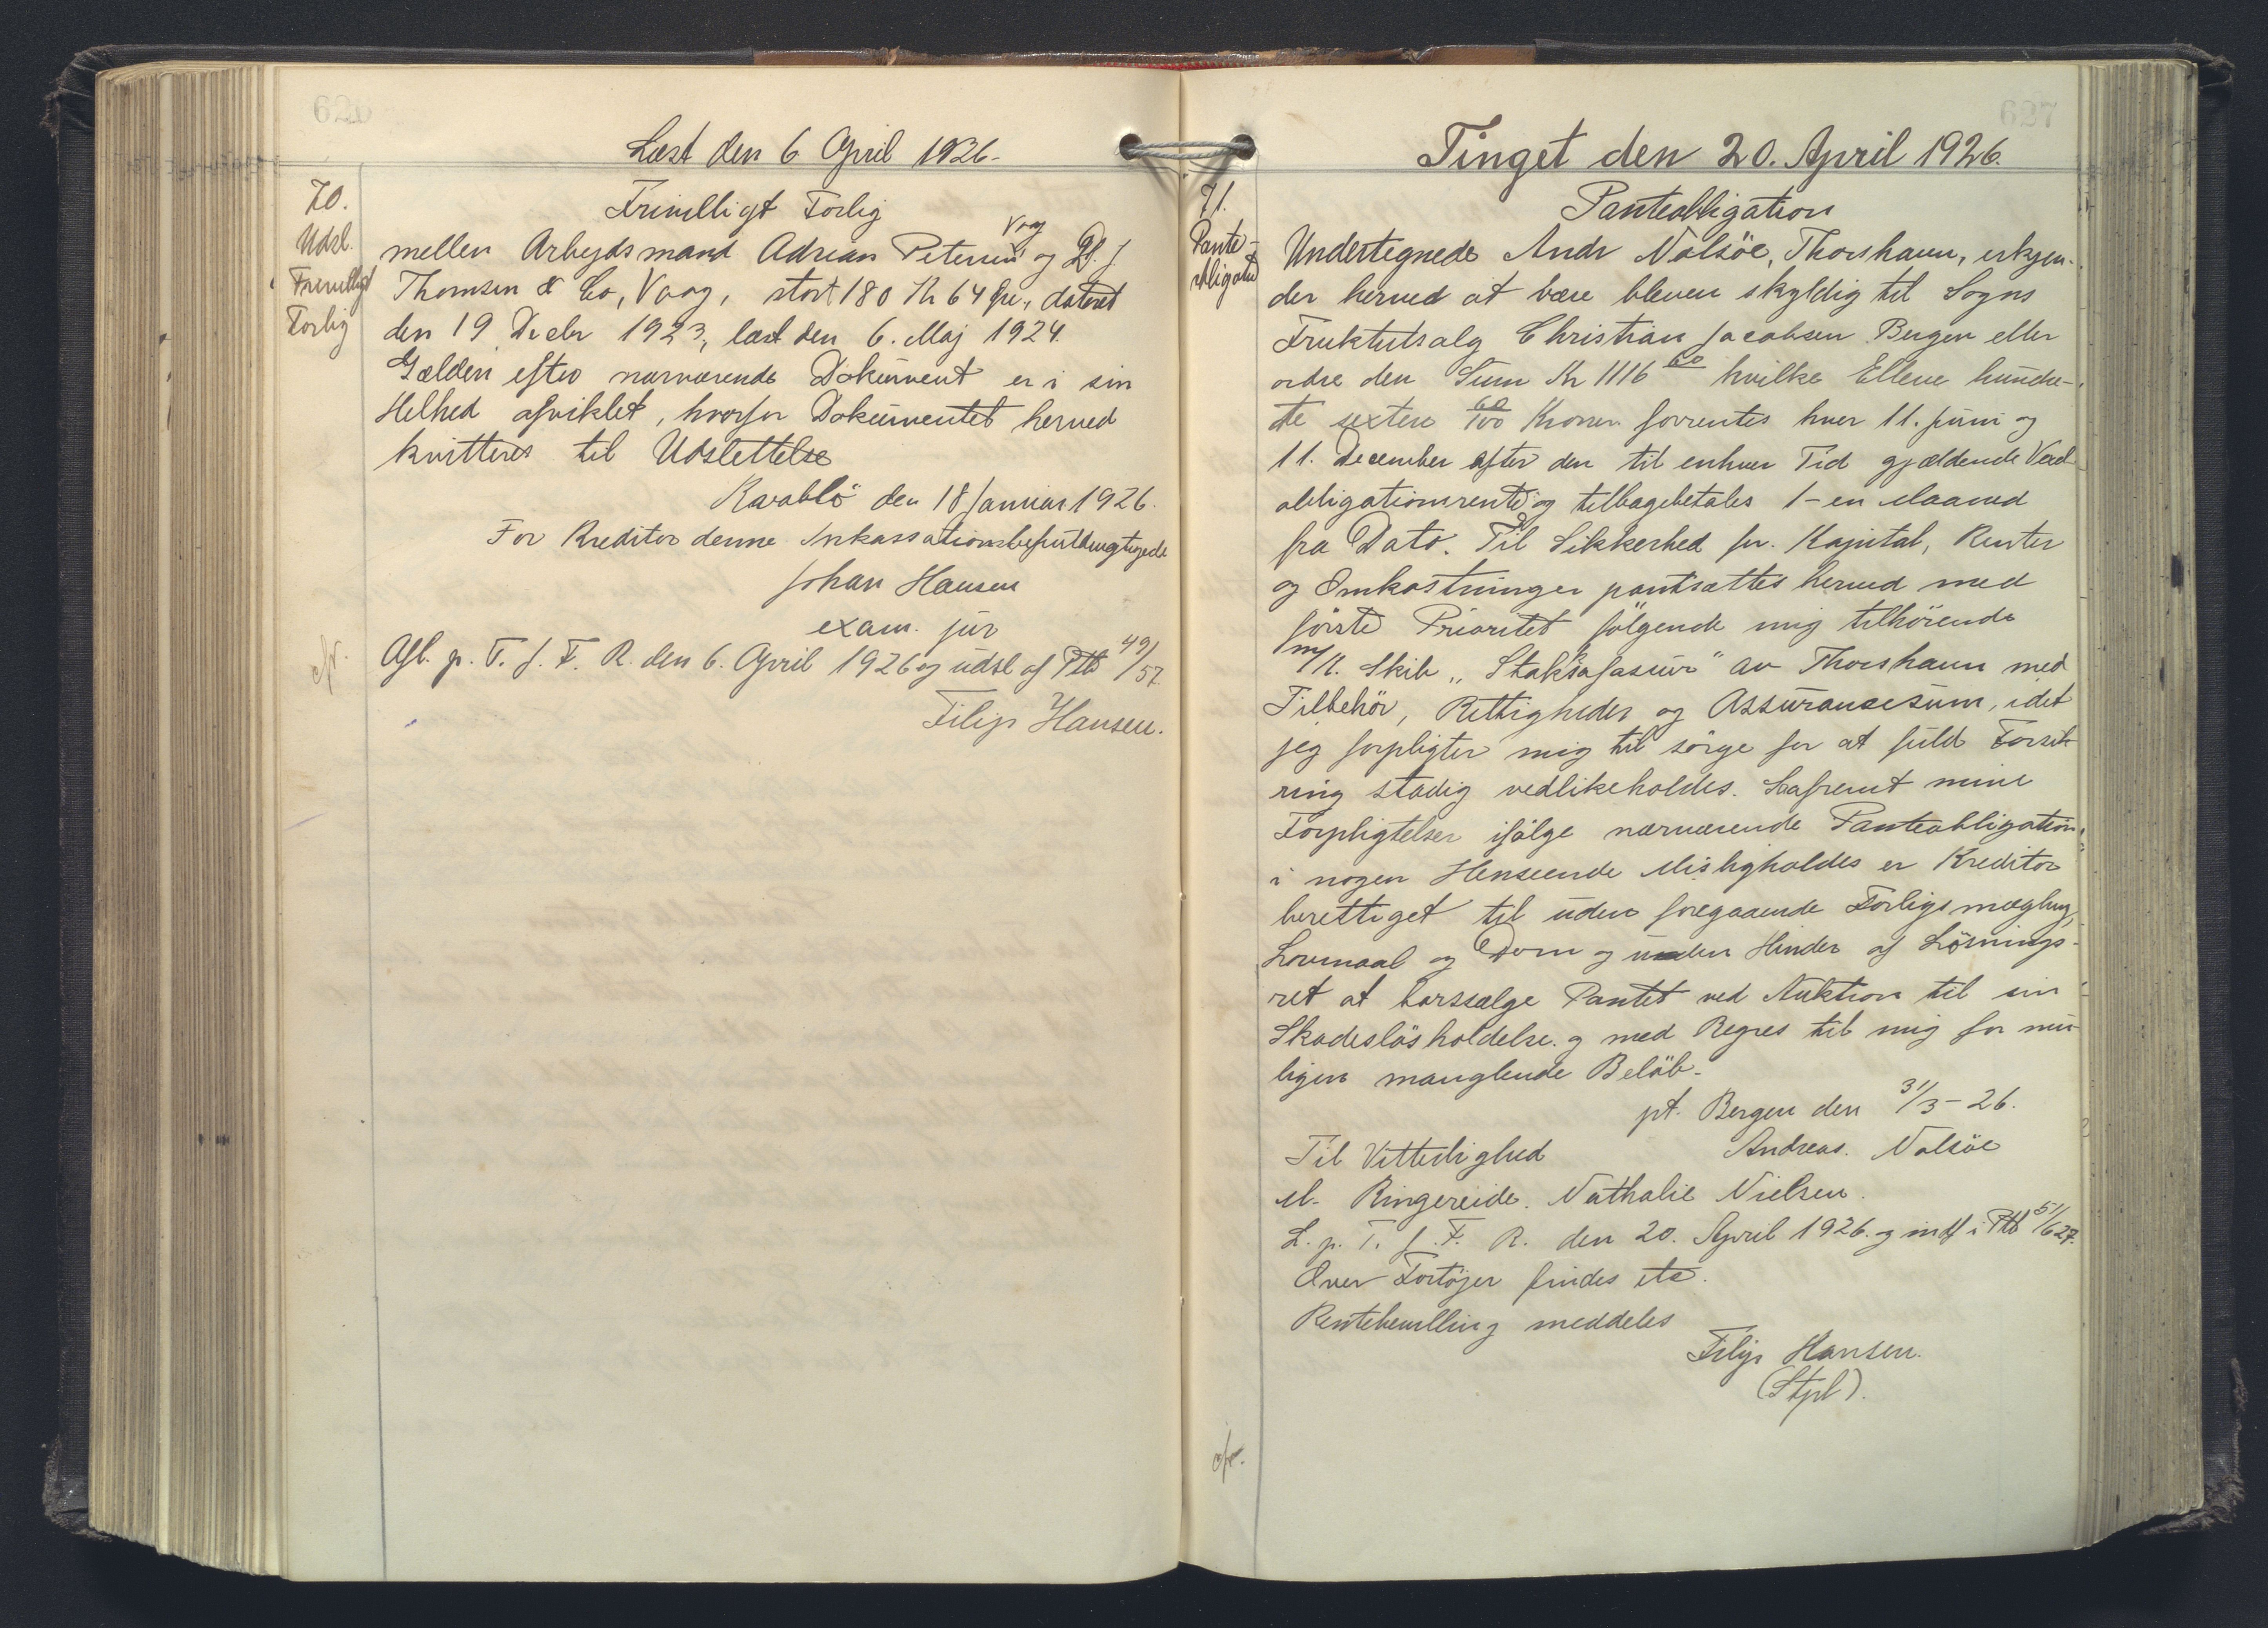 626
Læst den 6 April 1926.
70.
Udsl.
Frivilligt
Forlig
Frivilligt Forlig
mellem Arbejdsmand Adrian Petersen Vaag og D. J.
Thomsen & Co, Vaag, stort 180 Kr 64 Øre, dateret
den 19 Decbr 1923, læst den 6. Maj 1924.
Gælden efter nærværende Dokument er i sin
Helhed afviklet, hvorfor Dokumentet herved
kvitteres til Udslettelse
den 18 Januar 1926.
For Kreditor denne Inkassationsbefuldmægtigede
Johan Hansen
exam. jur
cfr.
Afl. p. T. f. F. R. den 6. April 1926 og udsl af Ptb 49/57.
Filip Hansen.
627
Tinget den 20. April 1926.
71.
Pante-
obligation
Panteobligation
Undertegnede Andr Nolsöe, Thorshavn, erkjen-
der herved at være bleven skyldig til Sogns
Fruktutsalg Christian Jacobsen Bergen eller
ordre den Sum Kr 1116 60 hvilke Elleve hundre-
de sexten 60/100 Kroner forrentes hver 11. Juni og
11. December efter den til enhver Tid gjældende Vexel
obligationsrente og tilbagebetales 1-en Maaned
fra Dato. Til Sikkerhed for Kapital, Renter
og Omkostninger pantsættes herved med
förste Prioritet fölgende mig tilhörende
m/K. Skib „ " av Thorshavn med
Tilbehör, Rettigheder og Assurancesum, idet
jeg forpligter mig til sörge for at fuld Forsik-
ring stadig vedlikeholdes. Saafremt mine
Forpligtelser ifölge nærværende Panteobligation
i nogen Henseende Misligholdes er Kreditor
berettiget til uden foregaaende Forligsmægling,
Lovmaal og Dom og uden Hinder af Lösnings-
ret at bortsælge Pantet ved Auktion til sin
Skadeslösholdelse og med Regres til mig for mu-
ligen manglende Belöb.
pt. Bergen den 31/3-26.
Til Vitterlighed Andreas. Nolsöe
M. Ringereide. Nathalie Nielsen.
L. p. T. f. F. R. den 20. April 1926. og indf i Ptb 51/627.
Over Fartöjer findes etc.
Rentebevilling meddeles
Filip Hansen.
(Stpl).
cfr.